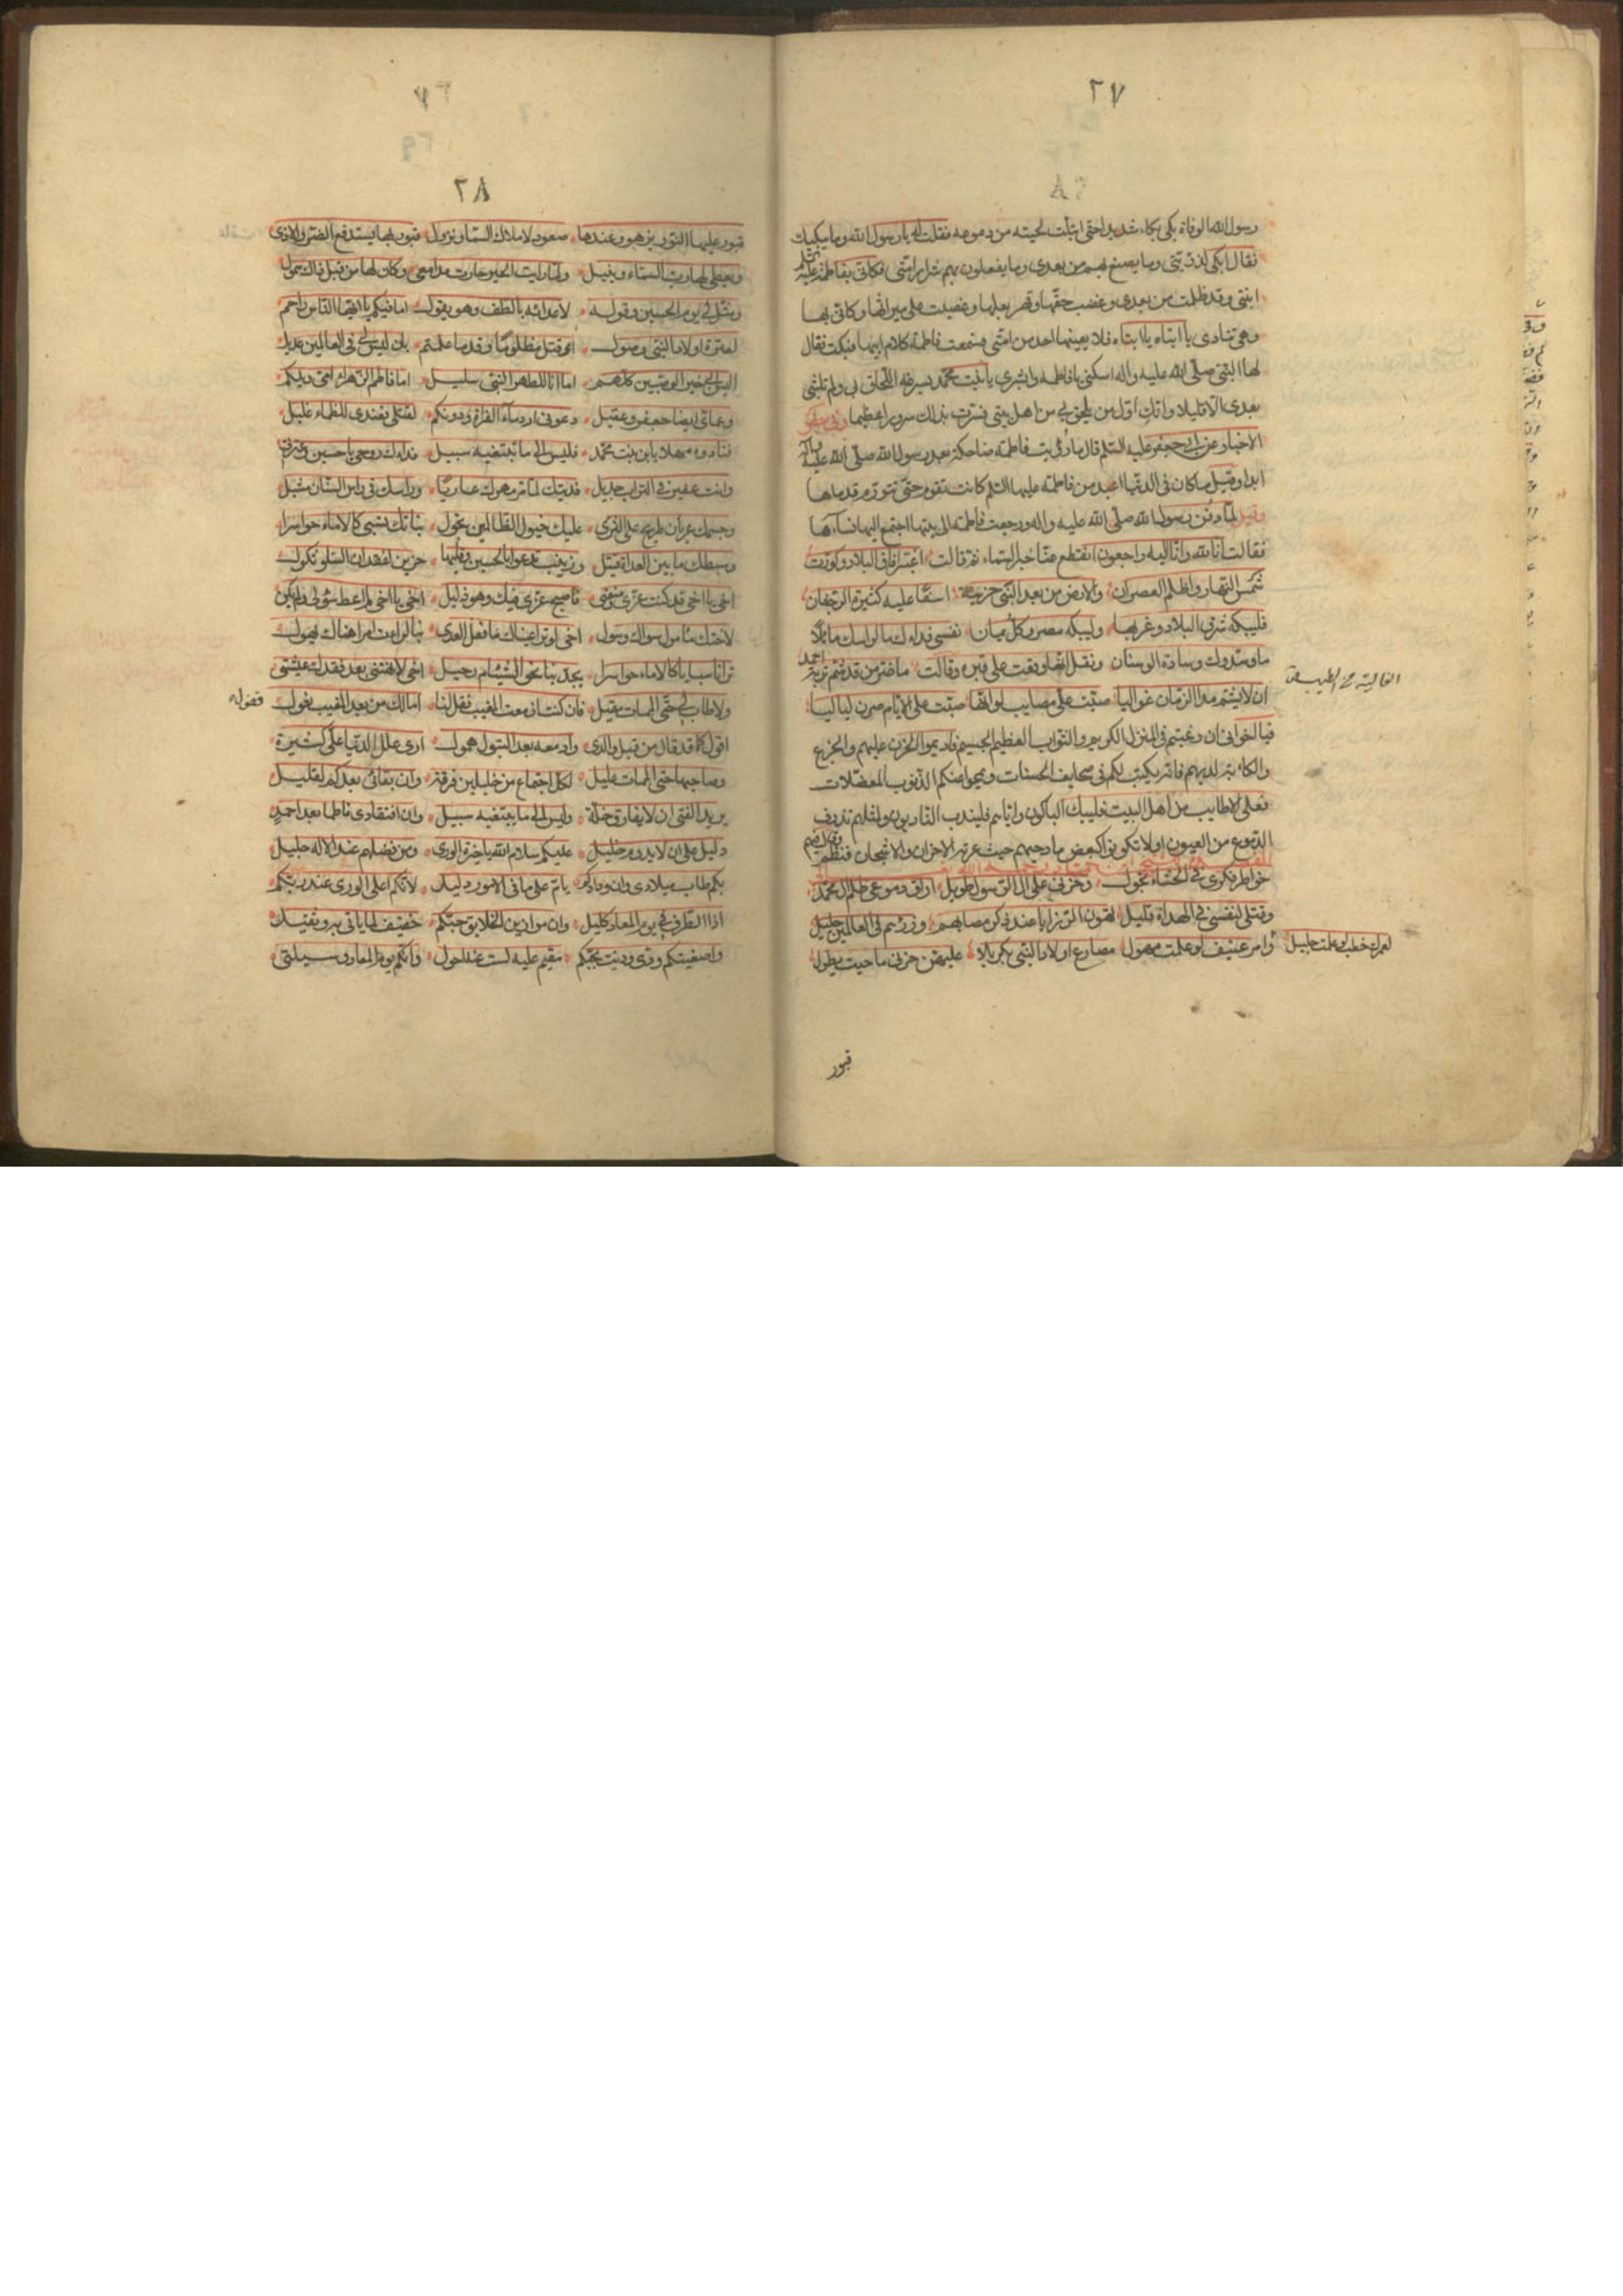 ٢٧
رسول الله الوفاة بكى بكاء شديدا حتى ابتلت لحيته من دموعه فقلت له يا رسول الله وما يبكيك
فقال ابكى لذريتى وما يصنع بهم من بعدى وما يفعلون بهم شرار امتى فكانى بفاطمة عليها السلام
ابنتى وقد ظلمت من بعدى وغصب حقها وقهر بعلها وغصبت على ميراثها وكانى بها
وهى تنادى يا ابتاه يا ابتاه فلا يعينها احد من امتى فسمعت فاطمة كلام ابيها فبكت فقال
لها النبى صلى الله عليه واله اسكنى يا فاطمة وابشرى يا بنت محمد بسرعة اللحاق بى ولم تلبثى
بعدى الا قليلا وانك اول من يلحق بى من اهل بيتى فسرت بذلك سرورا عظيما وفى بعض
الاخبار عن ابى جعفر عليه السلم قال ما رؤيت فاطمة ضاحكة بعد رسول الله صلى الله عليه واله
ابدا وقيل ما كان فى الدنيا اعبد من فاطمة عليها السلم كانت تقوم حتى تتورم قدماها
وقيل لما دفن رسول الله صلى الله عليه واله ورجعت فاطمة الى بيتها اجتمع اليها نساءها
فقالت انا لله وانا اليه راجعون انقطع عنا خبر السماء ثم قالت اغبر افاق البلاد وكورت
شمس النهار واظلم العصران والارض من بعد النبى حزينة اسفا عليه كثيرة الرجفان
فليبكه شرق البلاد وغربها وليبكه مصر وكل يمان نفسى فداءك ما لراسك مائلا
ما وسدوك وسادة الوسنان ونقل انها وقفت على قبره وقالت ما ضر من قد شم تربة احمد
الغالية من الطيب
ان لا يشم مدا الزمان غواليا صبت على مصايب لو انها صبت على الايام صرن لياليا
فيا اخوانى ان رغبتم فى المنزل الكريم والثواب العظيم الجسيم فاديموا الحزن عليهم والجزع
والكابة لديهم فانه يكتب لكم فى صحايف الحسنات ويمحوا عنكم الذنوب المعضلات
فعلى الاطايب من اهل البيت فليبك الباكون واياهم فليندب النادبون ولمثلهم تذرف
الدموع من العيون اولا تكونوا كبعض مادحيهم حيث عرته الاحزان والاشجان فنظم وقال فيهم
خواطر فكرى فى الحشاء تجول وحزنى على ال الرسول طويل اراق دموعى ظلم ال محمد
وقتلى لنفسى فى الهداة قليل تهون الرزايا عند ذكر مصابهم ورزئهم فى العالمين جليل
لعمرك خطب لو علمت جليل وامر عنيف لو علمت مهول مصارع اولاد النبى بكربلا عليهن حزنى ما حييت يطول
قبور
٢٨
قبور عليها النور يزهو وعندها صعود لاملاك السماء ونزول قبور بها يستدفع الضر والاذى
ويعطى بها رب السماء وينيل ولما رايت الحير حارت مدامعى وكان لها من قبل ذاك همول
ومثل لى يوم الحسين وقوله لاعدائه بالطف وهو يقول اما فيكم يا ايها الناس راحم
لعترة اولاد النبى وصول اءقتل مظلوما وقدما علمتم بان ليس لى فى العالمين عديل
اليس ابى خير الوصيين كلهم اما انا للطهر النبى سليل اما فاطم الزهراء امى ويلكم
وعماى ايضا جعفر وعقيل دعونى ارد ماء الفرات ودونكم لقتلى فعندى للظماء غليل
فنادوه مهلا يا بن بنت محمد فليس الى ما تبتغيه سبيل فداك روحى يا حسين وعترتى
وانت عفير فى التراب جديل فديتك لما تر مهرك عاريا وراسك فى راس السنان شيل
وجسمك عريان طريح على الثرى عليك خيول الظالمين تجول بناتك تسبى كالاماء حواسرا
وسبطك ما بين العداة قتيل وزينب تدعو يا حسين وقلبها حزين لفقدان السلو ثكول
اخى يا اخى قد كنت عزى ومنعتى فاصبح عزى فيك وهو ذليل اخى يا اخى لم اعط سؤلى ولم يكن
لاختك مامول سواك وسول اخى لو ترى عيناك ما فعل العدى بنا لرات امرا هناك يهول
ترانا سبايا كالاماء حواسرا يجد بنا نحو الشئام رحيل اخى لا هنتنى بعد فقدك عيشتى
ولا طاب لى حتى الممات مقيل فان كنت ازمعت المغيب فقل لنا امالك من بعد المغيب قفول
قفوله
اقول كما قد قال من قبل والدى وادمعه بعد البتول همول ارى علل الدنيا على كثيرة
وصاحبها حتى الممات عليل لكل اجتماع من خليلين فرقة وان بقائى بعدكم لقليل
يريد الفتى ان لا يفارق خله وليس الى ما يبتغيه سبيل وان افتقادى فاطما بعد احمد
دليل على ان لا يدوم خليل عليكم سلام الله يا خيرة الورى ومن فضلهم عند الاله جليل
بكم طاب ميلادى وان ودادكم يا تم على ما فى الامور دليل لانكم اعلى الورى عند ربكم
اذا الطرف فى يوم المعاد كليل وان موازين الخلايق حبكم خفيف لما ياتى به وثقيل
واصفيتكم ودى ودنت بحبكم مقيم عليه لست عنه احول وانكم يوم المعاد وسيلتى